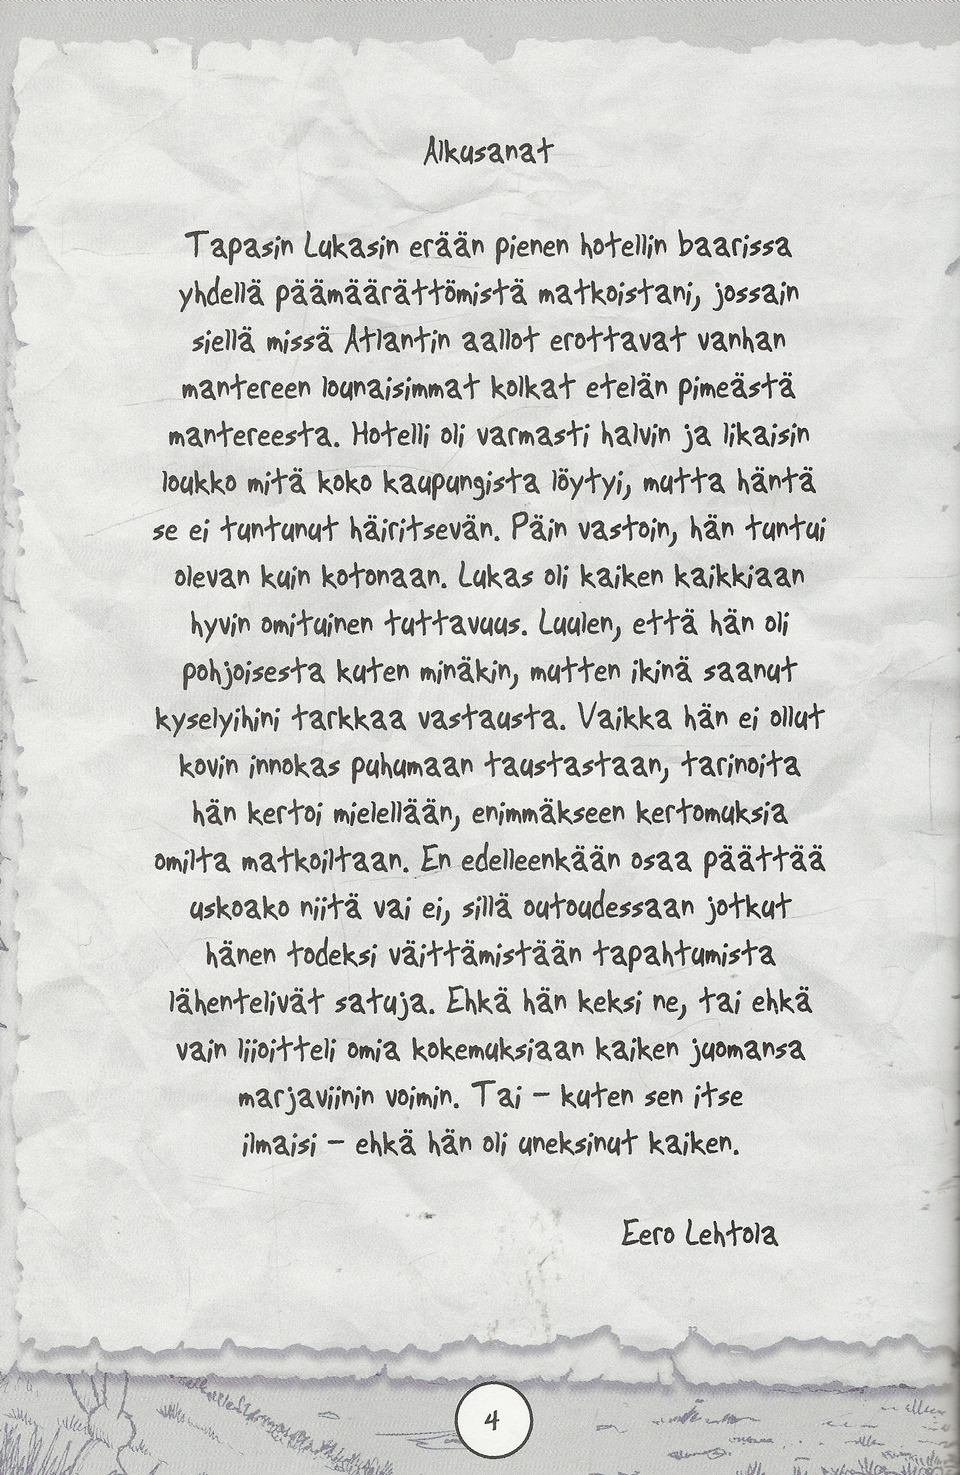 Alkusanat
Tapasin Lukasin erään pienen hotellin baarissa
yhdellä päämäärättömistä matkoistani, jossain
siellä missä Atlantin aallot erottavat vanhan
mantereen lounaisimmat kolkat etelän pimeästä
mantereesta. Hotelli oli varmasti halvin ja likaisin
loukko mitä koko kaupungista löytyi, mutta häntä
se ei tuntunut häiritsevän. Päin vastoin, hän tuntui
olevan kuin kotonaan. Lukas oli kaiken kaikkiaan
hyvin omituinen tuttavuus. Luulen, että hän oli
pohjoisesta kuten minäkin, mutten ikinä saanut
kyselyihini tarkkaa vastausta. Vaikka hän ei ollut
kovin innokas puhumaan taustastaan, tarinoita
hän kertoi mielellään, enimmäkseen kertomuksia
omilta matkoiltaan. En edelleenkään osaa päättää
uskoako niitä vai ei, sillä outoudessaan jotkut
hänen todeksi väittämistään tapahtumista
lähentelivät satuja. Ehkä hän keksi ne, tai ehkä
vain liioitteli omia kokemuksiaan kaiken juomansa
marjaviinin voimin. Tai – kuten sen itse
ilmaisi – ehkä hän oli uneksinut kaiken.
Eero Lehtola
4